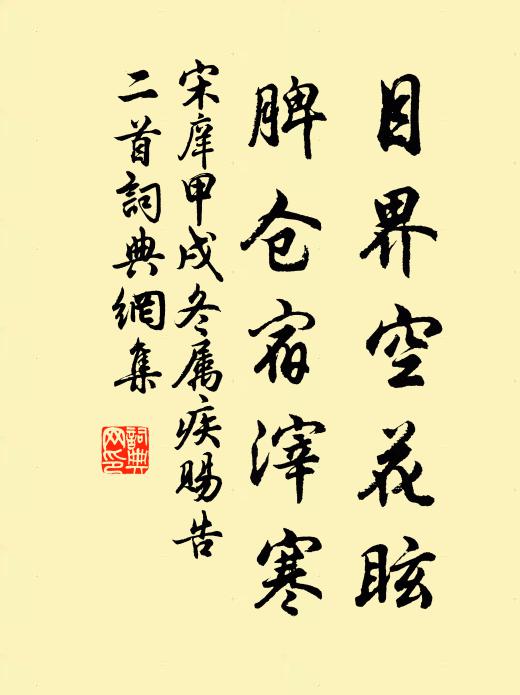 目界空花眩
脾仓宿滓寒
宋庠甲戌冬属疾赐告
二首詞典網集
詞典
网印